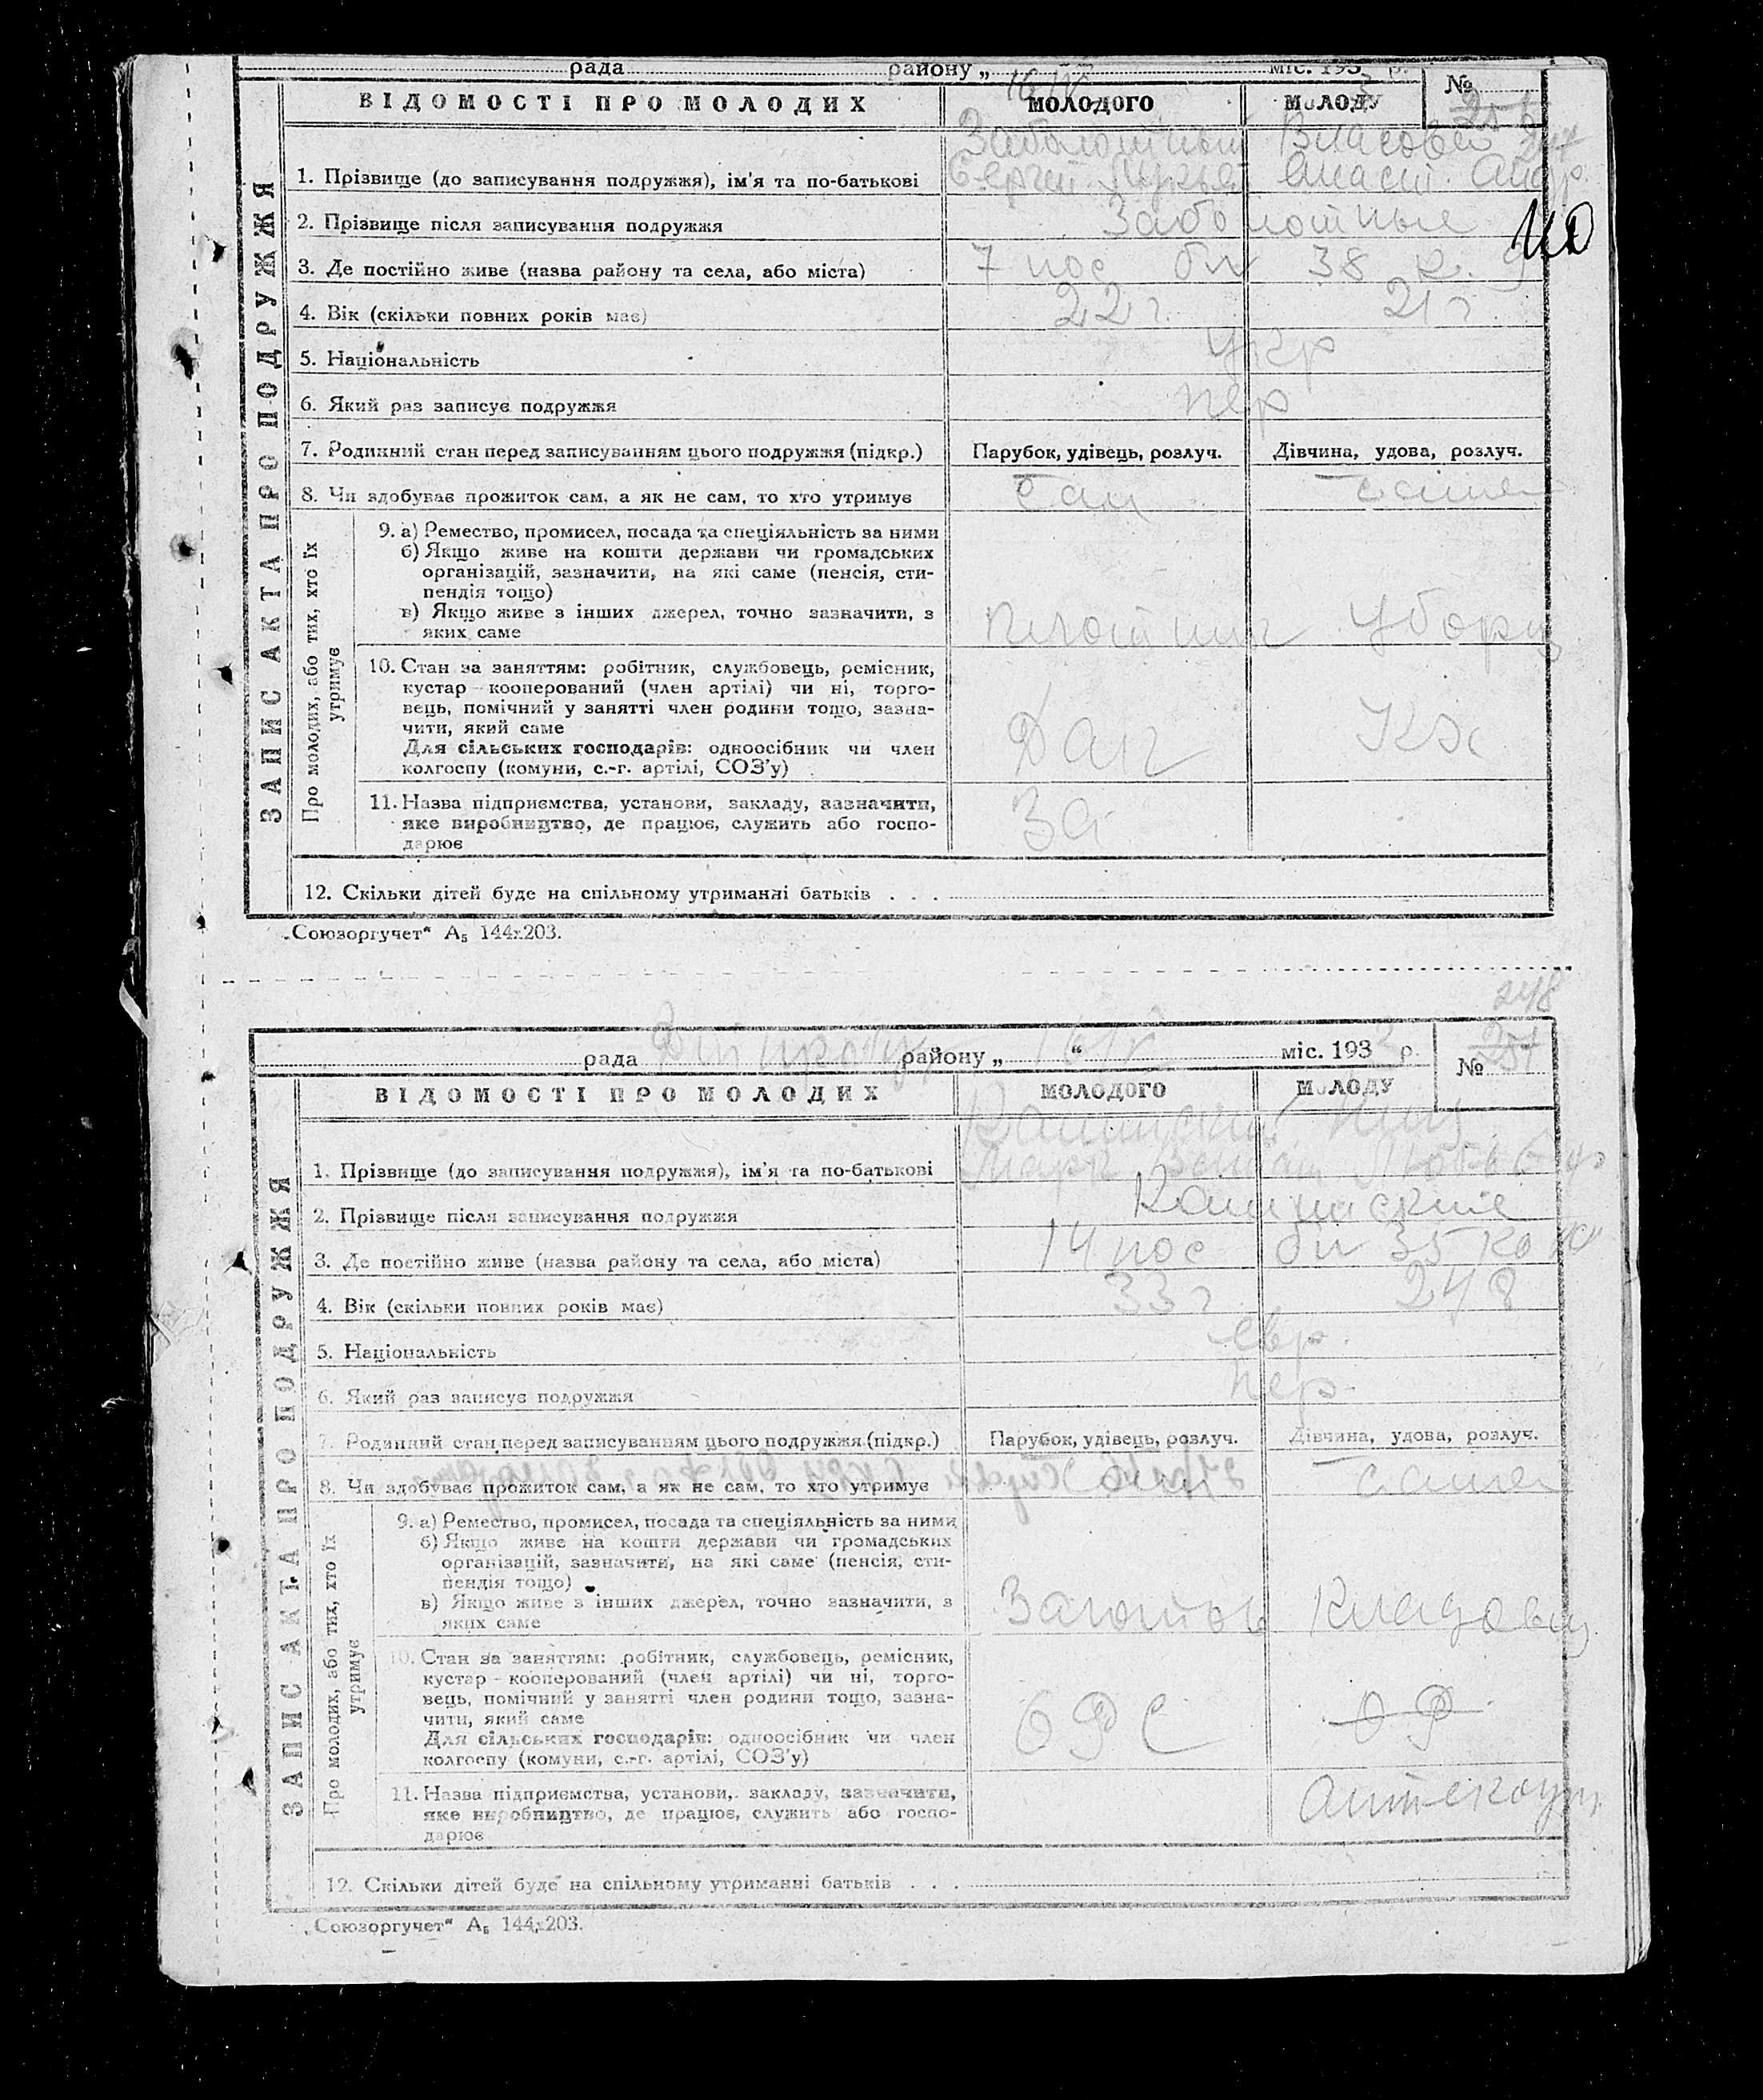 рада району „ 16 IV міс. 1933 р. №
ВІДОМОСТІ ПРО МОЛОДИХ МОЛОДОГО МОЛОДУ
Заболотный
1. Прізвище (до записування подружжя), ім'я та по-батькові Сергей Анаст. Андр.
2. Прізвище після записування подружжя Заболотные
3. Де постійно живе (назва району та села, або міста) 7 пос бл 38 к. 9
4. Вік (скільки повних років має) 22 г. 21 г.
5. Національність Укр
6. Який раз записує подружжя пер
7. Родинний стан перед записуванням цього подружжя (підкр.) Парубок, удівець, розлуч. Дівчина, удова, розлуч.
8. Чи здобуває прожиток сам, а як не сам, то хто утримує сам сама
ЗАПИС АКТА ПРО ПОДРУЖЖЯ
Про молодих, або тих, хто їх утримує
9. а) Ремество, промисел, посада та спеціяльність за ними
б) Якщо живе на кошти держави чи громадських
організацій, зазначити, на які саме (пенсія, сти-
пендія тощо)
в) Якщо живе з інших джерел, точно зазначити, з
яких саме плотник уборщ
10. Стан за заняттям: робітник, службовець, ремісник,
кустар – кооперований (член артілі) чи ні, торго-
вець, помічний у занятті член родини тощо, зазна-
чити, який саме
Для сільських господарів: одноосібник чи член
колгоспу (комуни, с.-г. артілі, СОЗ'у)
11. Назва підприємства, установи, закладу, зазначити,
яке виробництво, де працює, служить або госпо-
дарює
12. Скільки дітей буде на спільному утриманні батьків . . .
„Союзоргучет“ А₅ 144х203.
248
рада району „ 16 IV “ міс. 1933 р. №
ВІДОМОСТІ ПРО МОЛОДИХ МОЛОДОГО МОЛОДУ
1. Прізвище (до записування подружжя), ім'я та по-батькові Марк
2. Прізвище після записування подружжя
3. Де постійно живе (назва району та села, або міста) 14 пос бл 35
4. Вік (скільки повних років має) 33 г
5. Національність евр.
6. Який раз записує подружжя пер.
7. Родинний стан перед записуванням цього подружжя (підкр.) Парубок, удівець, розлуч. Дівчина, удова, розлуч.
8. Чи здобуває прожиток сам, а як не сам, то хто утримує сам сама
ЗАПИС АКТА ПРО ПОДРУЖЖЯ
Про молодих, або тих, хто їх утримує
9. а) Ремество, промисел, посада та спеціяльність за ними
б) Якщо живе на кошти держави чи громадських
організацій, зазначити, на які саме (пенсія, сти-
пендія тощо)
в) Якщо живе з інших джерел, точно зазначити, з
яких саме Заготов Кладовщ
10. Стан за заняттям: робітник, службовець, ремісник,
кустар – кооперований (член артілі) чи ні, торго-
вець, помічний у занятті член родини тощо, зазна-
чити, який саме ОРС ОР
Для сільських господарів: одноосібник чи член
колгоспу (комуни, с.-г. артілі, СОЗ'у)
11. Назва підприємства, установи, закладу, зазначити,
яке виробництво, де працює, служить або госпо-
дарює
12. Скільки дітей буде на спільному утриманні батьків . . .
„Союзоргучет“ А₅ 144х203.